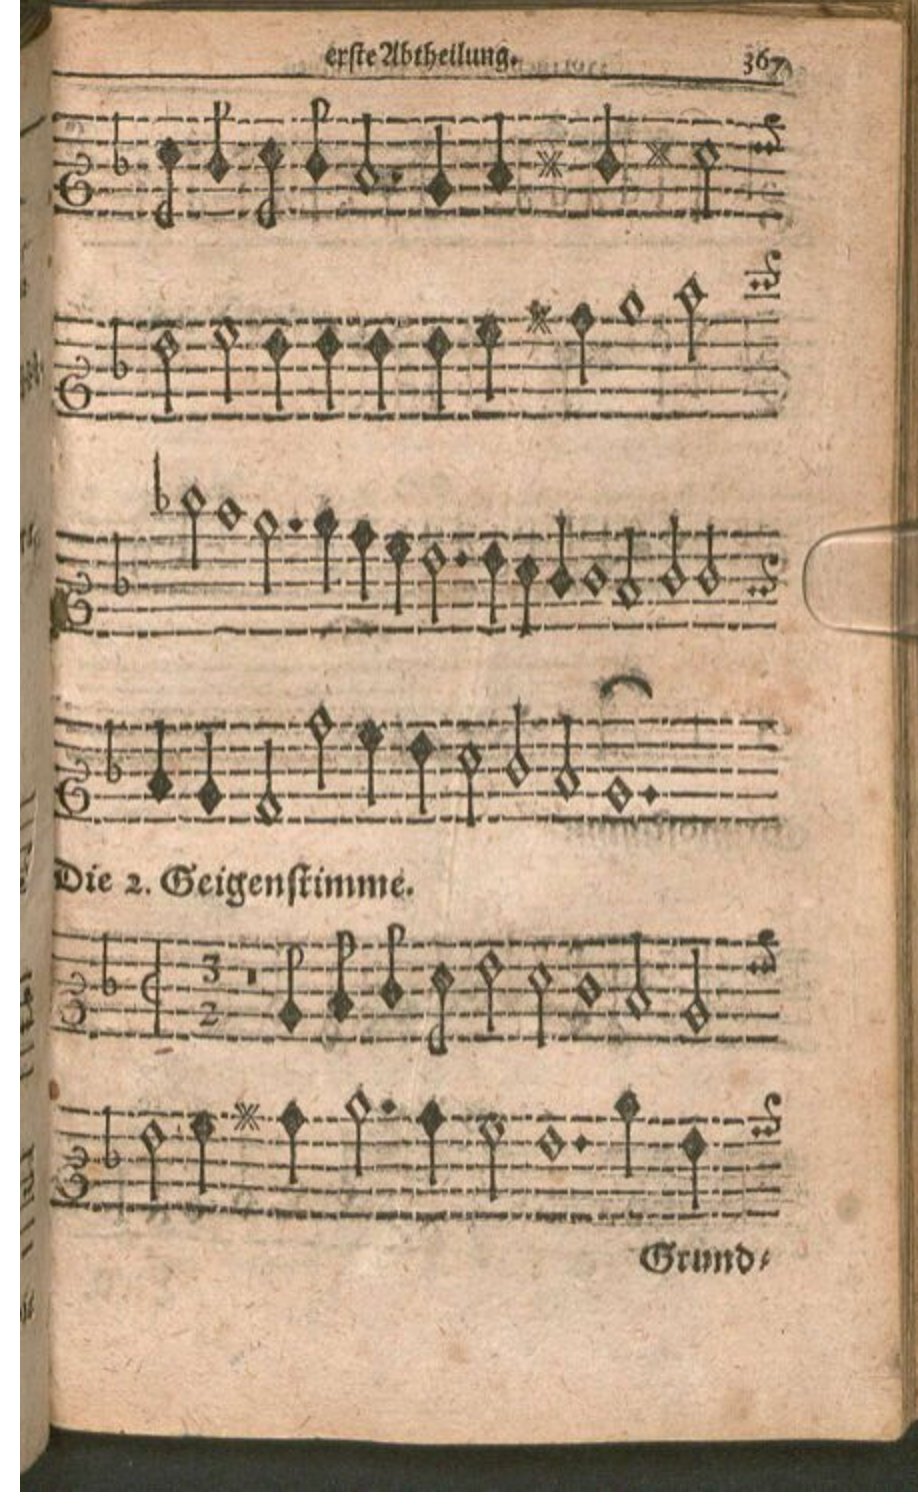 erste Abtheilung. 367
Die 2. Geigenstimme.
3
2
Grund⸗